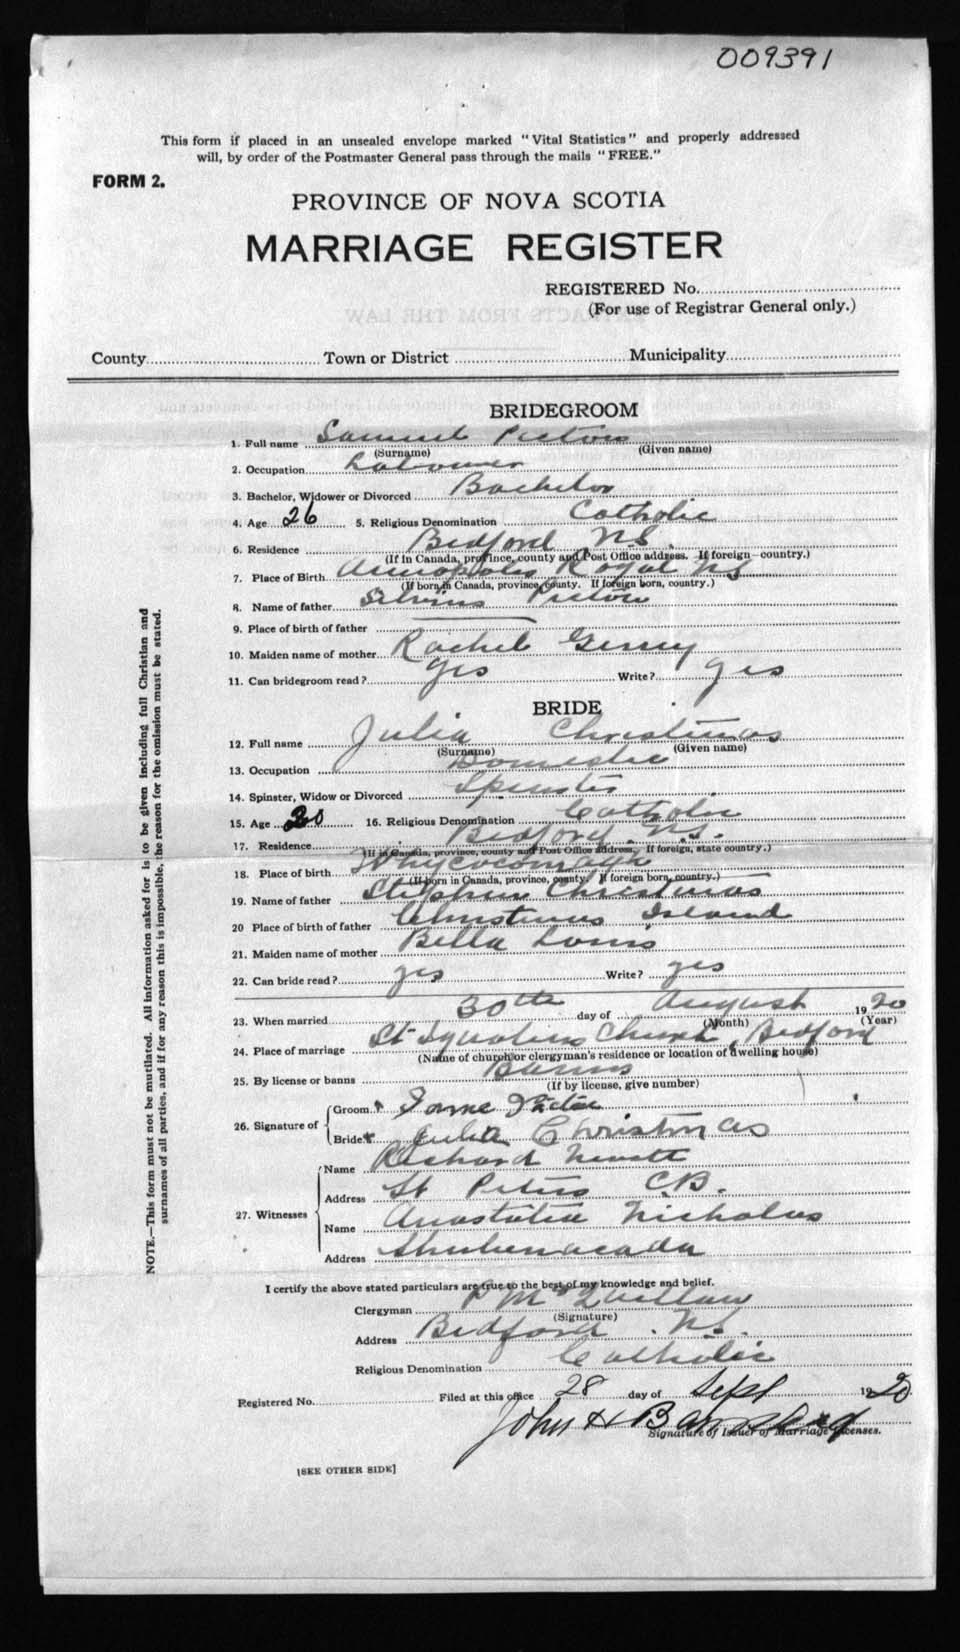 009391
This form if placed in an unsealed envelope marked "Vital Statistics" and properly addressed
will, by order of the Postmaster General pass through the mails "FREE."
FORM 2.
PROVINCE OF NOVA SCOTIA
MARRIAGE REGISTER
REGISTERED No.
(For use of Registrar General only.)
County Town or District Municipality
BRIDEGROOM
1. Full name Samuel Pictou
(Surname) (Given name)
2. Occupation Labourer
3. Bachelor, Widower or Divorced Bachelor
4. Age 26 5. Religious Denomination Catholic
6. Residence Bedford N.S.
(If in Canada, province, county and Post Office address. If foreign—country.)
7. Place of Birth Annapolis Royal NS
(If born in Canada, province, county. If foreign born, country.)
8. Name of father Pictou
9. Place of birth of father
10. Maiden name of mother Rachel
11. Can bridegroom read? yes Write? yes
BRIDE
12. Full name Julia Christmas
(Surname) (Given name)
13. Occupation Domestic
14. Spinster, Widow or Divorced Spinster
15. Age 20 16. Religious Denomination Catholic
17. Residence Bedford N.S.
(If in Canada, province, county and Post Office address. If foreign, state country.)
18. Place of birth Whycocomagh
(If born in Canada, province, county. If foreign born, country.)
19. Name of father Stephen Christmas
20 Place of birth of father Christmas Island
21. Maiden name of mother Bella Louis
22. Can bride read? yes Write? yes
23. When married 30th day of August 1920
(Month) (Year)
24. Place of marriage St Ignatius Church, Bedford
(Name of church or clergyman's residence or location of dwelling house)
25. By license or banns Banns
(If by license, give number)
26. Signature of
Groom
Bride Julia Christmas
27. Witnesses
Name Richard
Address St Peters C.B.
Name Anastatia Nicholas
Address Shubenacada
I certify the above stated particulars are true to the best of my knowledge and belief.
Clergyman McQuillan
(Signature)
Address Bedford N.S.
Religious Denomination Catholic
Registered No. Filed at this office 28 day of Sept 1920
John H
Signature of Issuer of Marriage Licenses.
[SEE OTHER SIDE]
NOTE.—This form must not be mutilated. All information asked for is to be given including full Christian and
surnames of all parties, and if for any reason this is impossible, the reason for the omission must be stated.